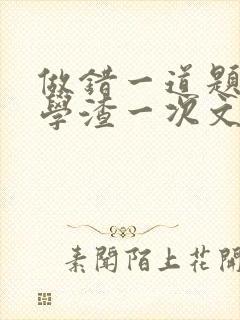 做錯一道題
學渣一次文
素聞陌上花開